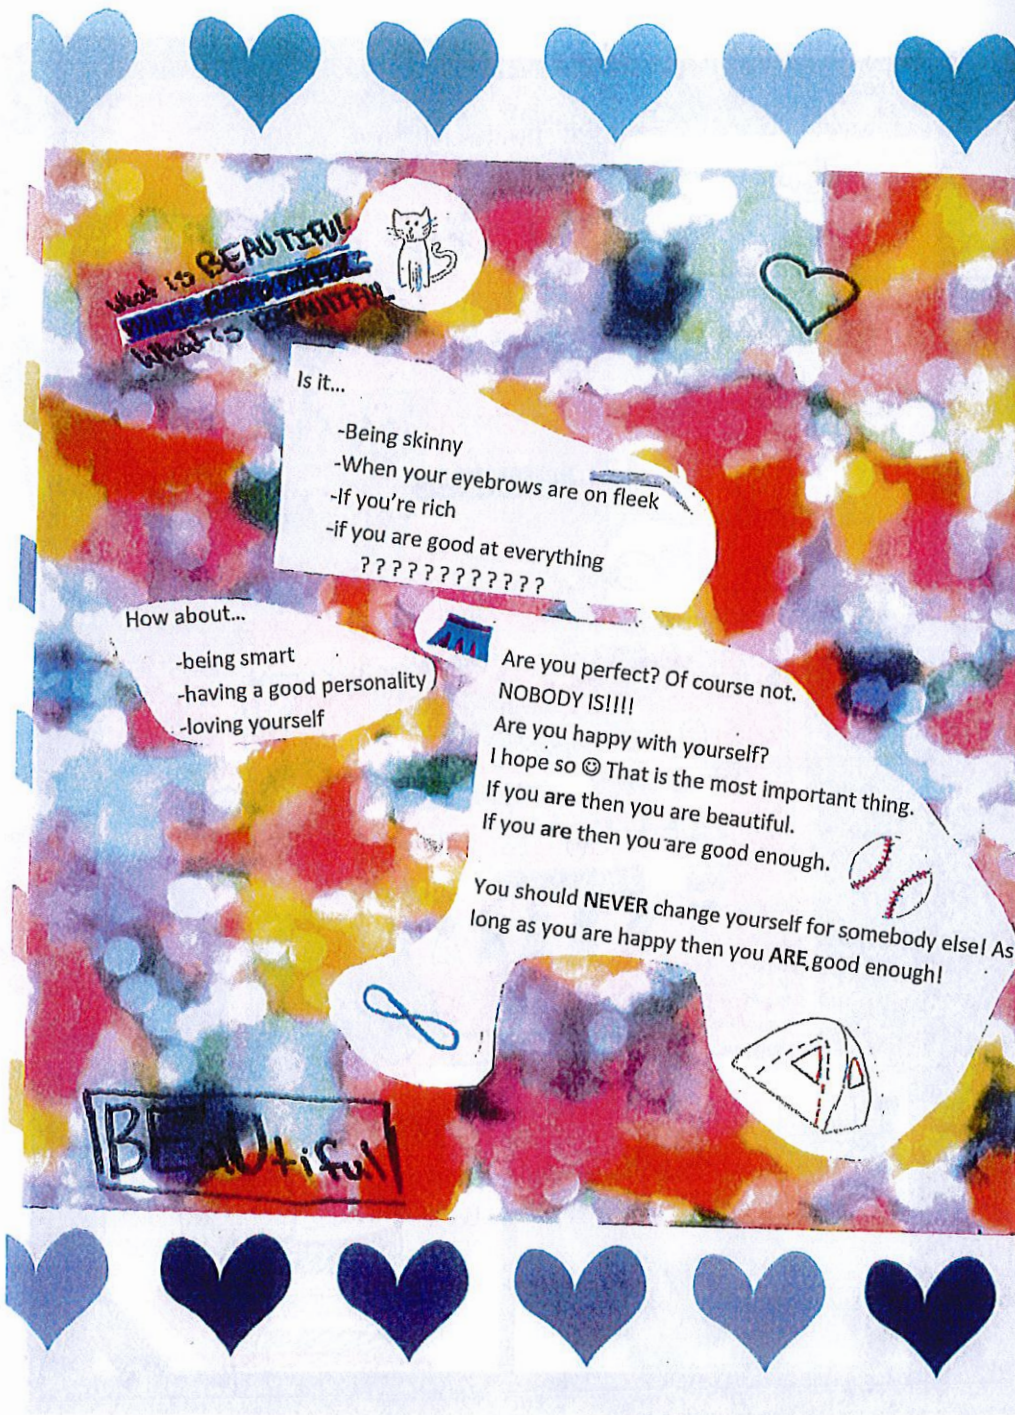 What is BEAUTIFUL
What is BEAUTIFUL
Is it...
-Being skinny
-When your eyebrows are on fleek
-If you're rich
-if you are good at everything
? ? ? ? ? ? ? ? ? ? ? ?
How about...
-being smart
-having a good personality
-loving yourself
Are you perfect? Of course not.
NOBODY IS!!!!
Are you happy with yourself?
I hope so ☺ That is the most important thing.
If you are then you are beautiful.
If you are then you are good enough.
You should NEVER change yourself for somebody else! As
long as you are happy then you ARE good enough!
BEaUtiful